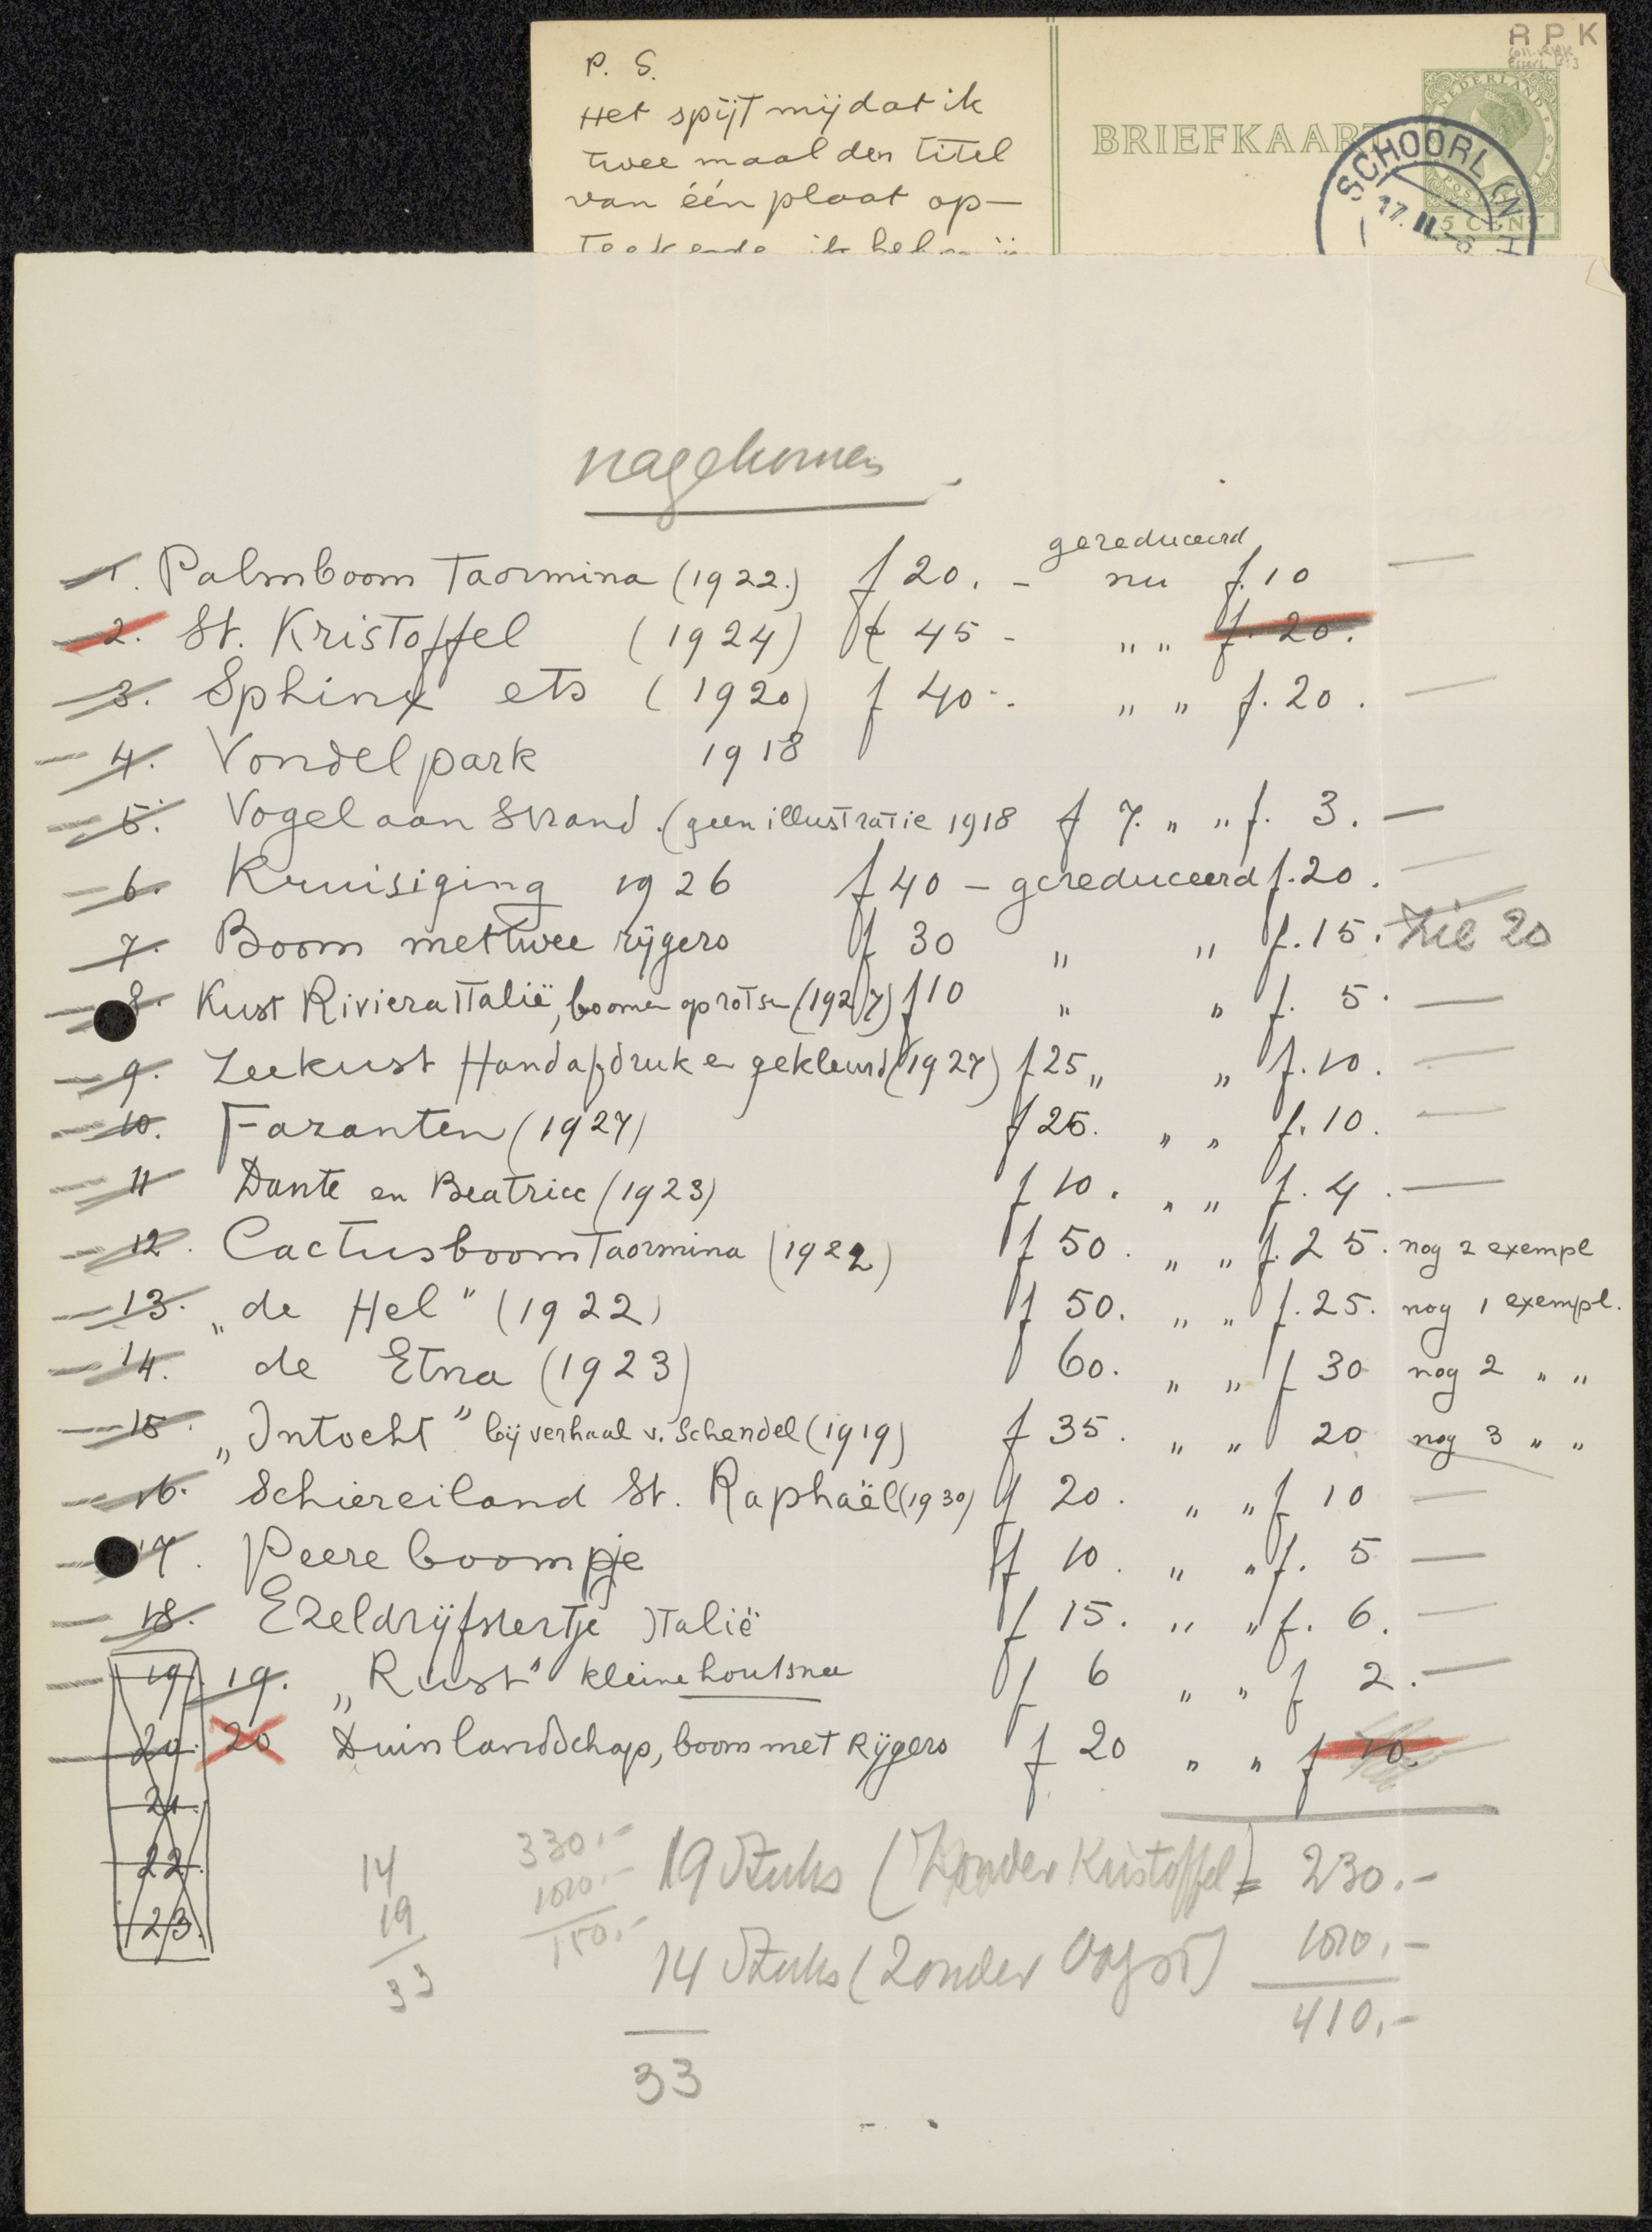 R P K
P. S.
Het spijt mij dat ik
twee maal den titel
van één plaat op-
BRIEFKAART
NEDERLAND
5 CENT
SCHOORL (N.H.
17.II
nagekomen
gereduceerd
1. Palmboom Taormina (1922.) f 20. - nu f. 10 —
2. St. Kristoffel (1924) f 45 - " " f. 20.
3. Sphinx ets (1920) f 40 -. " " f. 20. —
4. Vondelpark 1918
5. Vogel aan Strand. (geen illustratie 1918 f 7. " " f. 3. —
6. Kruisiging 1926 f 40 - gereduceerd f. 20. —
7. Boom met twee rijgers f 30 " " f. 15. Zie 20
8. Kust Riviera Italië, boomen op rotsen (1927) f 10 " " f. 5. —
9. Zeekust Handafdruk en gekleurd (1927) f 25 " " f. 10. —
10. Fazanten (1927) f 25. " " f. 10. —
11 Dante en Beatrice (1923) f 10. " " f. 4. —
12. Cactusboom Taormina (1922) f 50. " " f. 25. nog 2 exempl
13. "de Hel" (1922) f 50. " " f. 25. nog 1 exempl.
14. de Etna (1923) f 60. " " f 30 nog 2 " "
15. "Intocht" bij verhaal v. Schendel (1919) f 35. " " 20 nog 3 " "
16. Schiereiland St. Raphaël (1930) f 20. " " f 10 —
17. Peereboompje f 10. " " f. 5 —
18. Ezeldrijfstertje Italië f 15. " " f. 6. —
19. 19. "Rust" kleine houtsnee f 6 " " f 2. —
20. 20 Duinlandschap, boom met Rijgers f 20 " " f 10.
21.
22.
23.
14
19
33
330.-
1010.-
150.-
19 Stuks (Zonder Kristoffel) = 230.-
14 Stuks (Zonder 1010.-
410.-
33